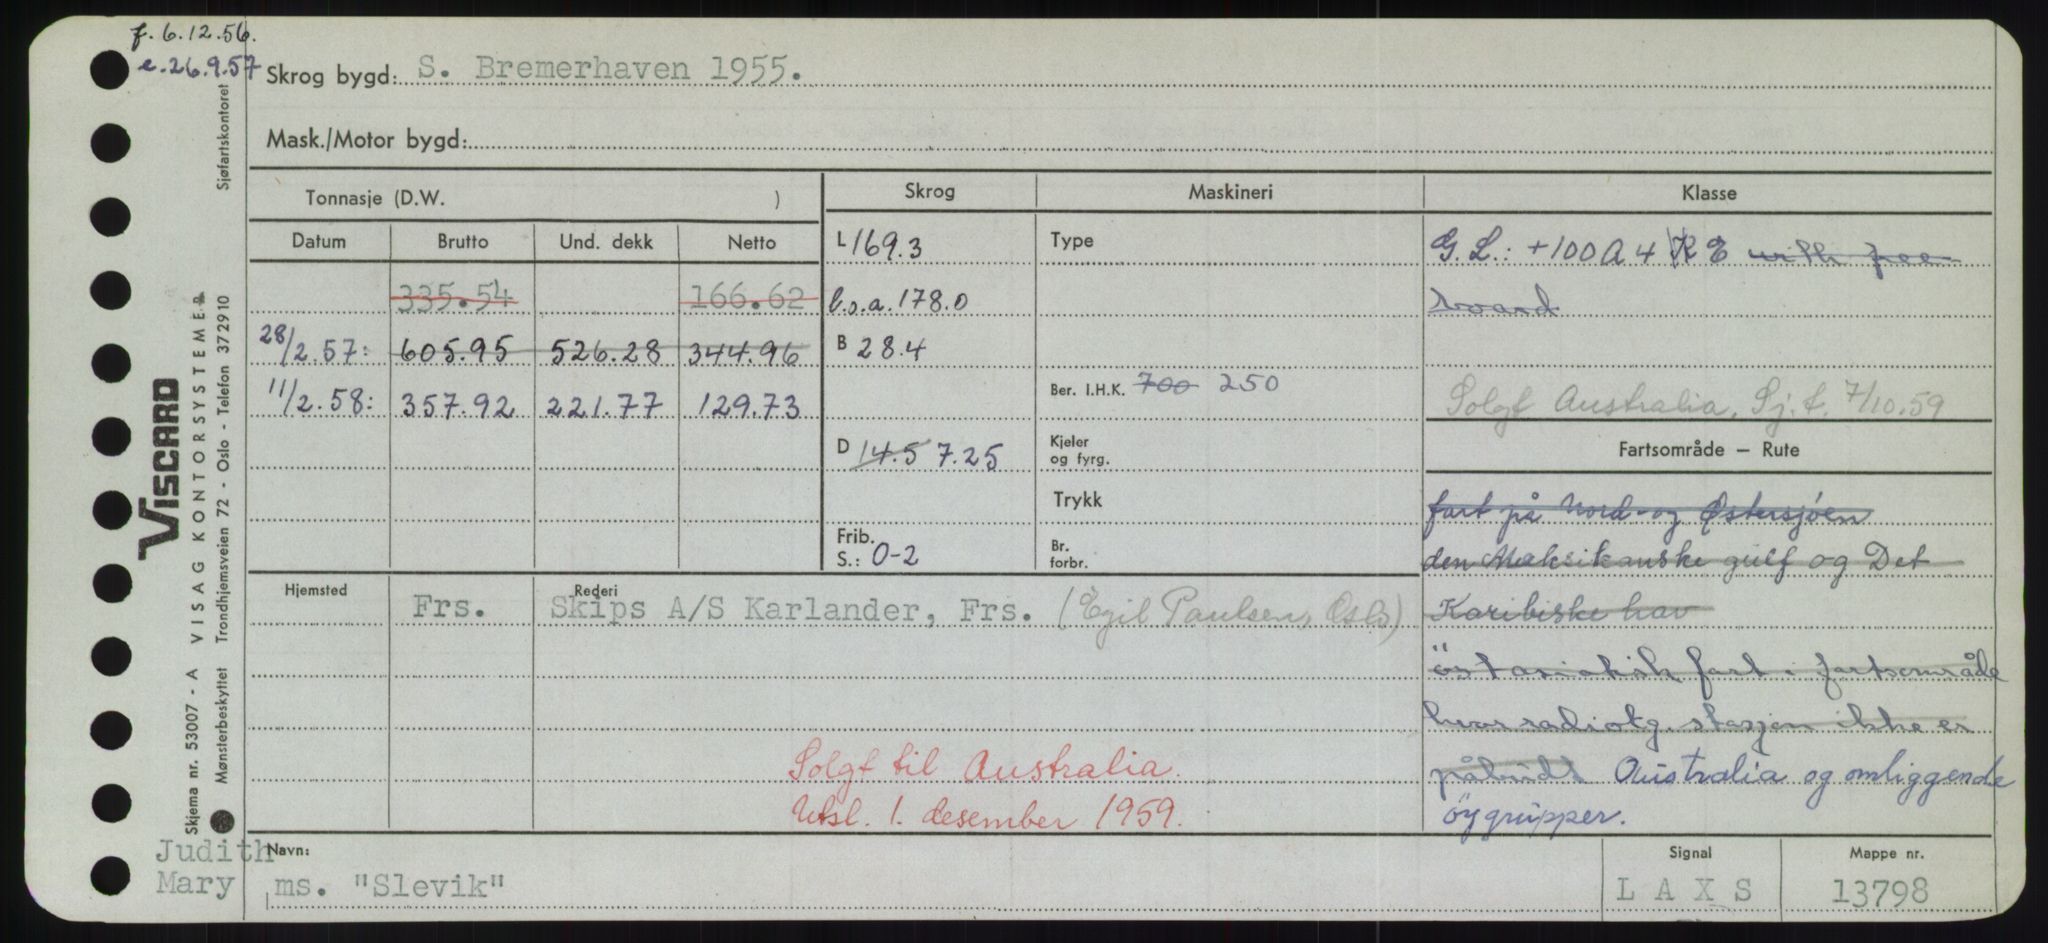 f. 6.12.56.
e. 26.9.57
Skrog bygd: S. Bremerhaven 1955.
Mask./Motor bygd:
Tonnasje (D.W. )
Skrog
Maskineri
Klasse
Datum Brutto Und. dekk Netto
335.54 166.62
28/2.57: 605.95 526.28 344.96
11/2.58: 357.92 221.77 129.73
L 169.3
l.o.a. 178.0
B 28.4
D 14.5 7.25
Frib.
S.: 0-2
Type
Ber. I.H.K. 700 250
Kjeler
og fyrg.
Trykk
Br.
forbr.
G.L.: +100 A 4 K E with free
board
Solgt Australia. Sj. f. 7/10.59
Fartsområde – Rute
fart på Nord- og Østersjøen
den Meksikanske gulf og Det
Karibiske hav
öst asiatisk fart i fartsområde
hvor radiotg. stasjon ikke er
påbudt Australia og omliggende
öygrupper.
Hjemsted
Rederi
Frs. Skips A/S Karlander, Frs. (Egil Paulsen, Oslo)
Solgt til Australia.
Utsl. 1. desember 1959.
Judith
Mary
Navn:
ms. "Slevik"
Signal
L A X S
Mappe nr.
13798
VISCARD
Skjema nr. 53007 - A VISAG KONTORSYSTEMER
Mønsterbeskyttet Trondhjemsveien 72 - Oslo - Telefon 372910 Sjøfartskontoret